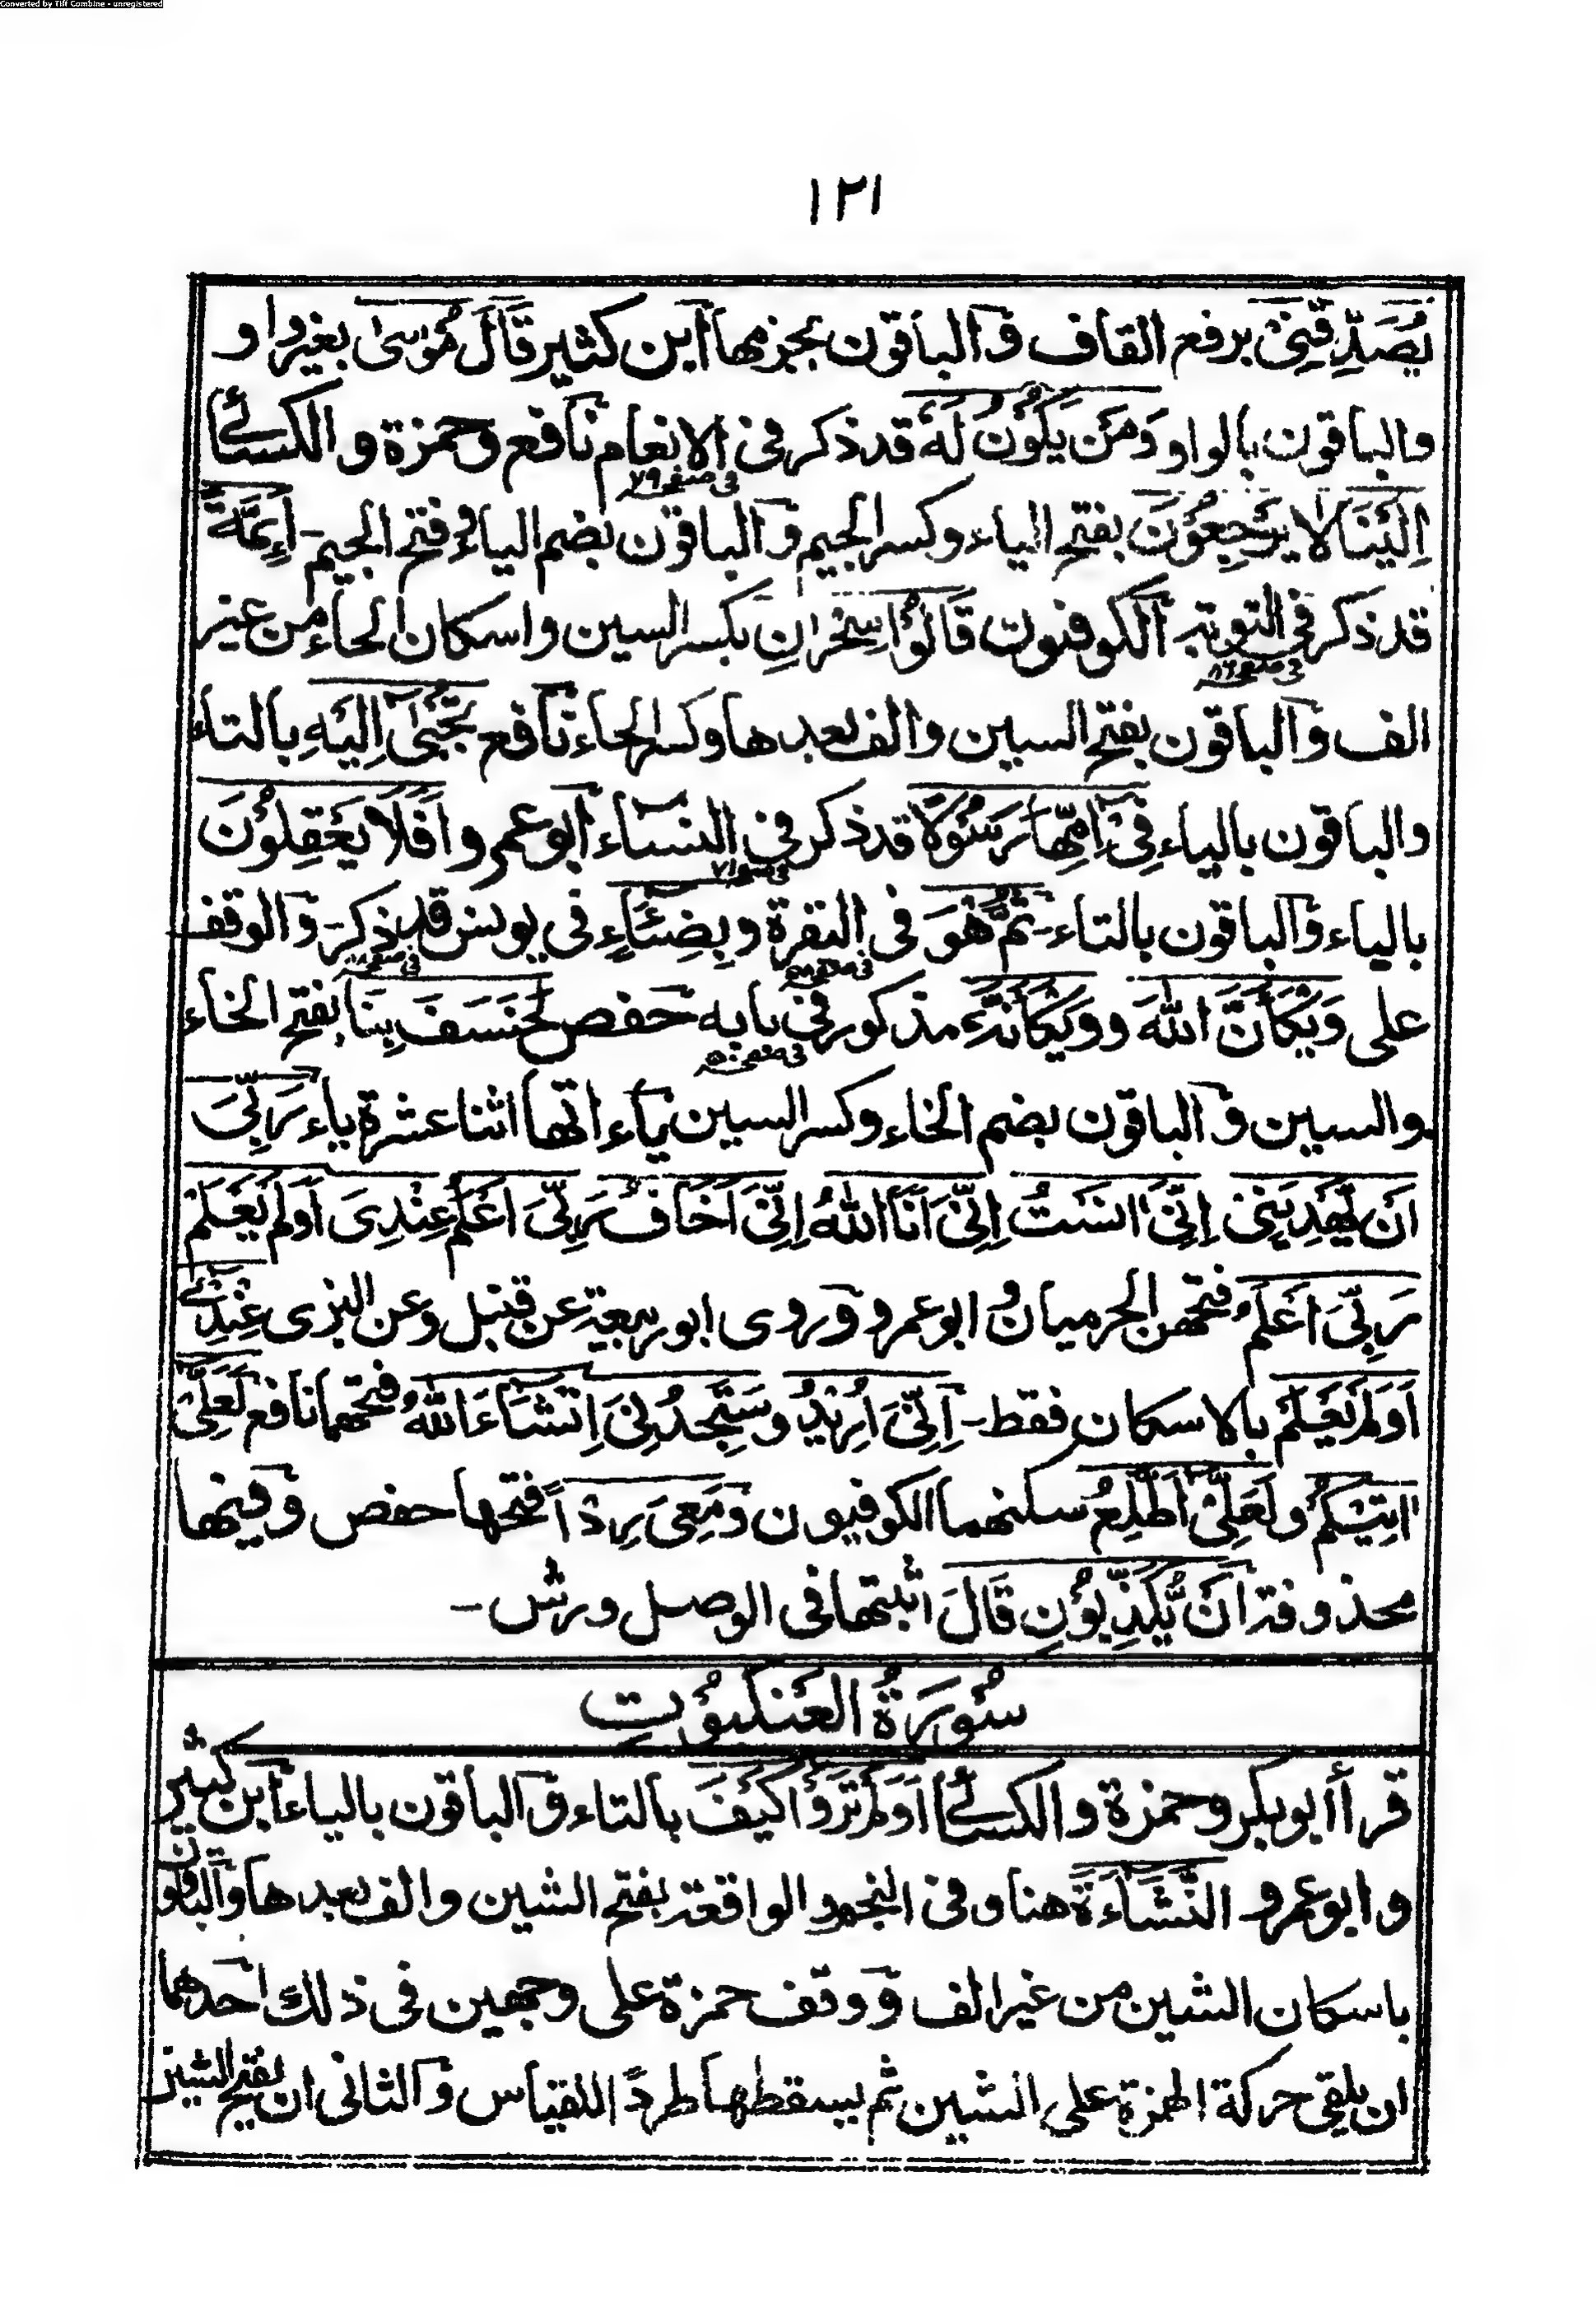 Converted by Tiff Combine - unregistered
١٢١
يُصَدِّقُنِىْ برفع القاف وَالباقون بجزمها ابن كثير قَالَ مُوْسٰى بغير واو
والباقون بالواو وَمَنْ يَكُوْنُ لَهٗ قد ذكر فى الانعام نافع وحمزة والكسائى
فى صفحه ٧٩
اِلَيْنَا لَا يَرْجِعُوْنَ بفتح الياء وكسر الجيم وَالباقون بضم الياء وفتح الجيم - اَئِمَّةً
قد ذكر فى التوبة الكوفيون قَالُوْا سِحْرَانِ بكسر السين واسكان الحاء من غير
فى صفحه ٨٦
الف وَالباقون بفتح السين والف بعدها وكسر الحاء نافع تُجْبٰى اِلَيْهِ بالتاء
والباقون بالياء فِىْ اُمِّهَا رَسُوْلًا قد ذكر فى النساء ابو عمرو اَفَلَا يَعْقِلُوْنَ
فى صفحه ٧١
بالياء وَالباقون بالتاء - ثُمَّ هُوَ فى البقرة وبِضِيَآءٍ فى يونس قد ذكر - وَالوقف
على وَيْكَاَنَّ اللّٰهَ وويْكَاَنَّهٗ مذكور فى بابه حفص لَخَسَفَ بِنَا بفتح الخاء
والسين وَالباقون بضم الخاء وكسر السين ياءاتها اثنا عشرة ياء رَبِّىَ
اَنْ يَّهْدِيَنِىْ اِنِّىَ اٰنَسْتُ اِنِّىَ اَنَا اللّٰهُ اِنِّىَ اَخَافُ رَبِّىَ اَعْلَمُ عِنْدِىَ اَوَلَمْ يَعْلَمْ
رَبِّىَ اَعْلَمُ فتحهن الحرميان وابو عمرو وروى ابو ربيعة عن قنبل وعن البزى عِنْدِىْ
اَوَلَمْ يَعْلَمْ بالاسكان فقط - اِنِّىَ اُرِيْدُ وسَتَجِدُنِىَ اِنْشَآءَ اللّٰهُ فتحهما نافع لَعَلِّىْ
اٰتِيْكُمْ ولَعَلِّىْ اَطَّلِعُ سكنهما الكوفيون ومَعِىَ رِدْاً فتحها حفص وفيها
محذوفة اَنْ يُّكَذِّبُوْنِ قَالَ اثبتها فى الوصل ورش -
سُوْرَةُ العَنْكَبُوْتِ
قرأ ابو بكر وحمزة والكسائى اَوَلَمْ تَرَوْا كَيْفَ بالتاء وَالباقون بالياء ابن كثير
وابو عمرو النَّشَآءَةَ هنا وفى النجم والواقعة بفتح الشين والف بعدها وَالباقون
باسكان الشين من غير الف ووقف حمزة على وجهين فى ذلك احدهما
ان يلقى حركة الهمزة على الشين ثم يسقطها طرداً للقياس وَالثانى ان يفتح الشين